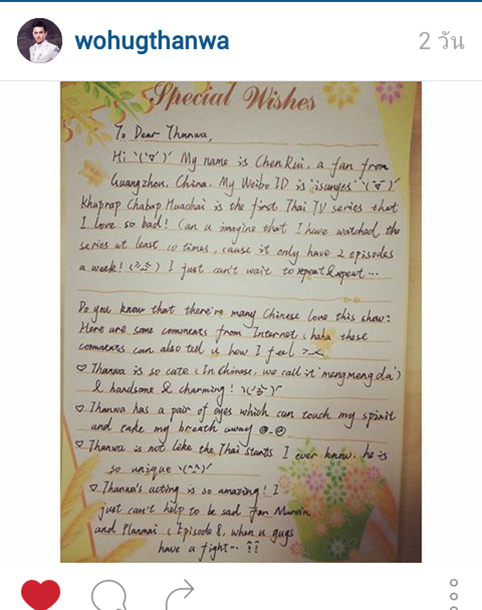 wohugthanwa
2 วัน
Special Wishes
To Dear Thanwa,
Hi ˋ(ˊ∇ˋ)ˊ My name is Chen Rui, a fan from
Guangzhou, China. My Weibo ID is 'isunges'
Khaprap Chabap Huachai is the first Thai TV series that
I love so bad! Can u imagine that I have watched the
series at least 10 times, cause it only have 2 episodes
a week! I just can't wait to repeat & repeat ...
Do you know that there're many Chinese love this show:
Here are some comments from Internet, haha these
comments can also tell u how I feel >~<
♡ Thanwa is so cute (In Chinese, we call it 'mengmeng da')
& handsome & charming!
♡ Thanwa has a pair of eyes which can touch my spirit
and take my breath away
♡ Thanwa is not like the Thai stants I ever know. he is
so unique ヽ(^^)ˊ
♡ Thanwa's acting is so amazing! I
just can't help to be sad for Marvin
and Planmai (Episode 8, when u guys
have a fight...